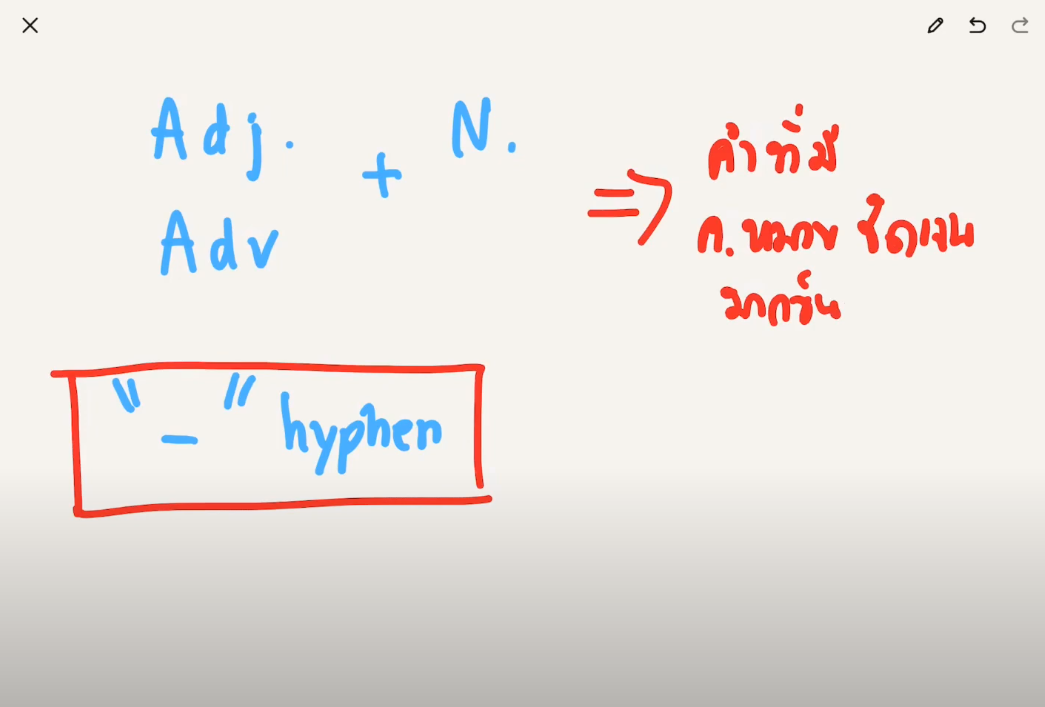 Adj. + N.
Adv
⇒ คำที่มี
ค.หมาย ชัดเจน
มากขึ้น
"-" hyphen